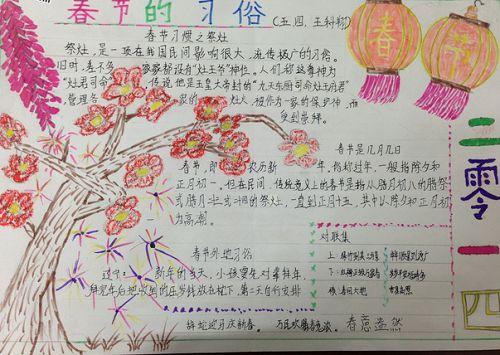 春节的习俗
(五、四、王科彬)
春节习惯之祭灶
祭灶,是一项在我国民间影响很大、流传极广的习俗。
旧时,差不多 家家都设有“灶王爷”神位。人们称这尊神为
“灶君司命” 传说他是玉皇大帝封的“九天东厨司命灶王府君”
管理各 家的 灶火,被作为一家的保护神,而
受到崇拜。
春节是几月几日
春节,即 农历新 年,俗称过年,一般指除夕和
正月初一。但在民间,传统意义上的春节是指从腊月初八的腊祭
或腊月 的祭灶,一直到正月十五,其中以除夕和正月初
一为高潮。
春节外地习俗
辽宁: 新年的当天,小孩要先对 拜年,
拜完年后把收到的压岁钱放在枕下,第二天自行安排
对联集
上:
下:
横:春回大地
春
福
二零一四
春意盎然